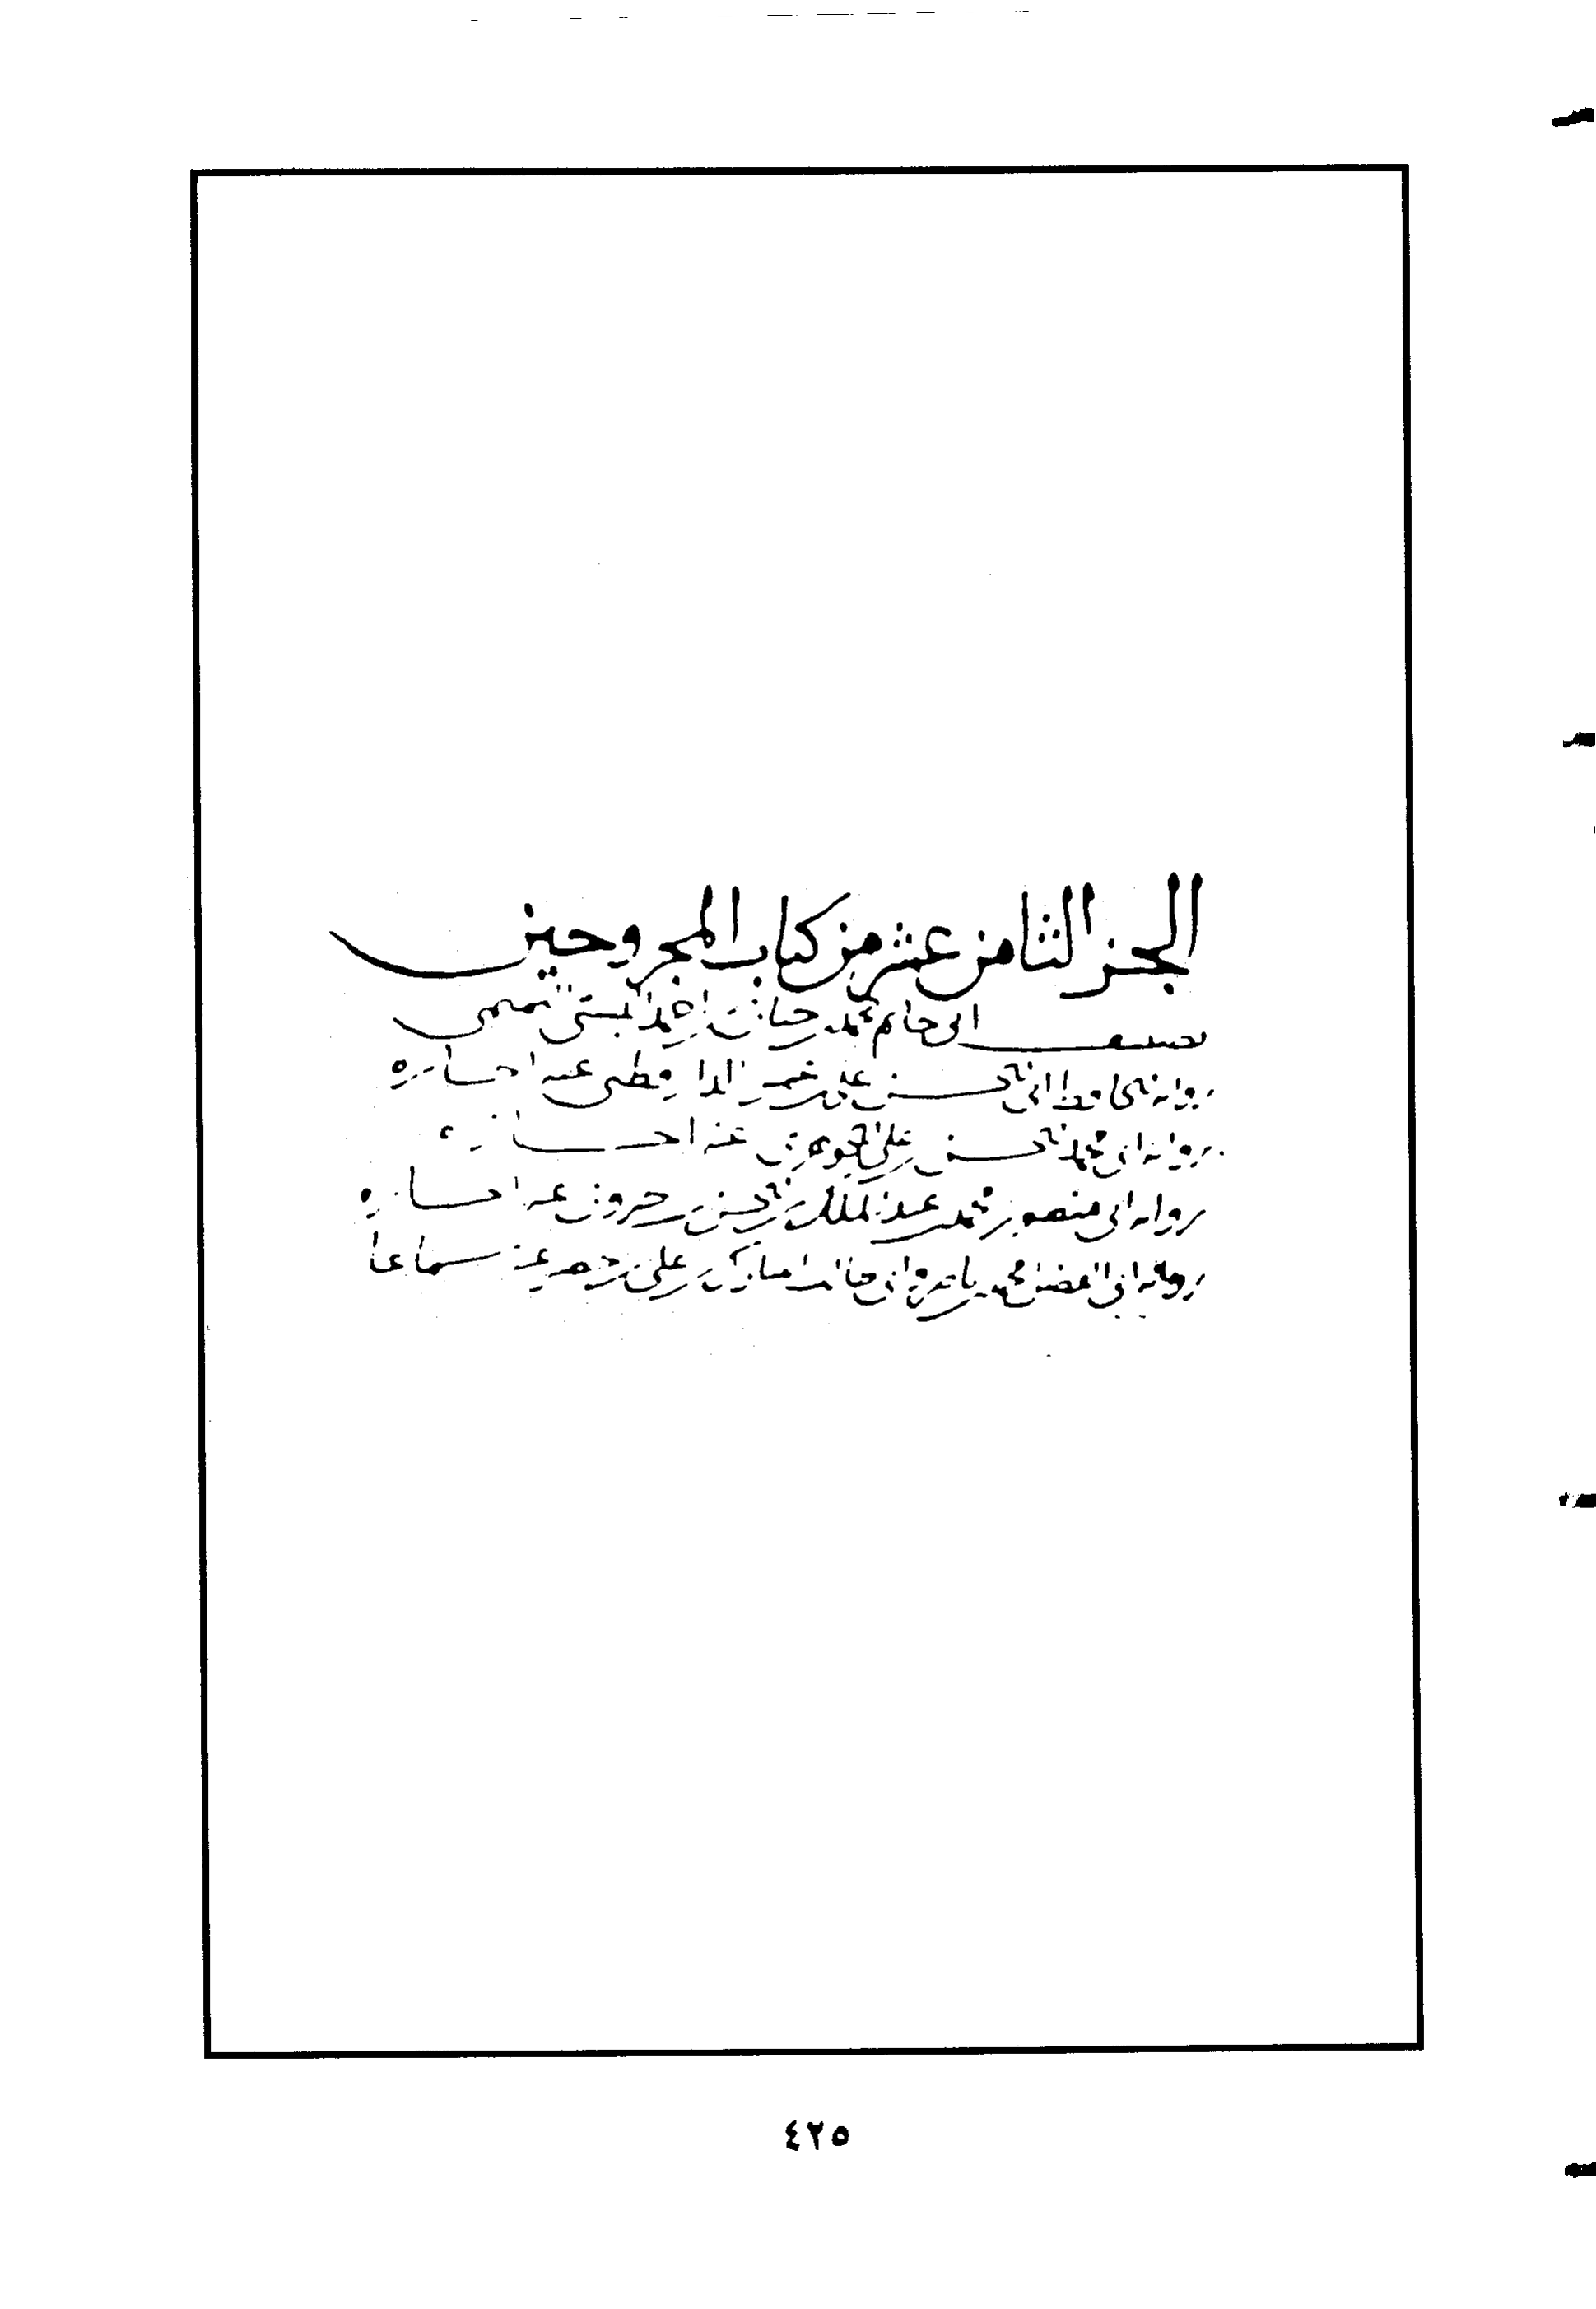 الجز الثامن عشر من كتاب المجروحين
تصنيف ابى حاتم محمد بن حبان بن احمد البستي التميمى
رواية الحافظ ابى الحسن على بن عمر الدارقطنى عنه اجازه
رواية ابى محمد الحسن بن على الجوهرى عنه اجازه
رواية ابى منصور محمد بن عبد الملك بن الحسن بن خيرون عنه اجازه
رواية ابى الفضل محمد بن ناصر وابى المبارك بن على بن عنه سماعا
٤٢٥